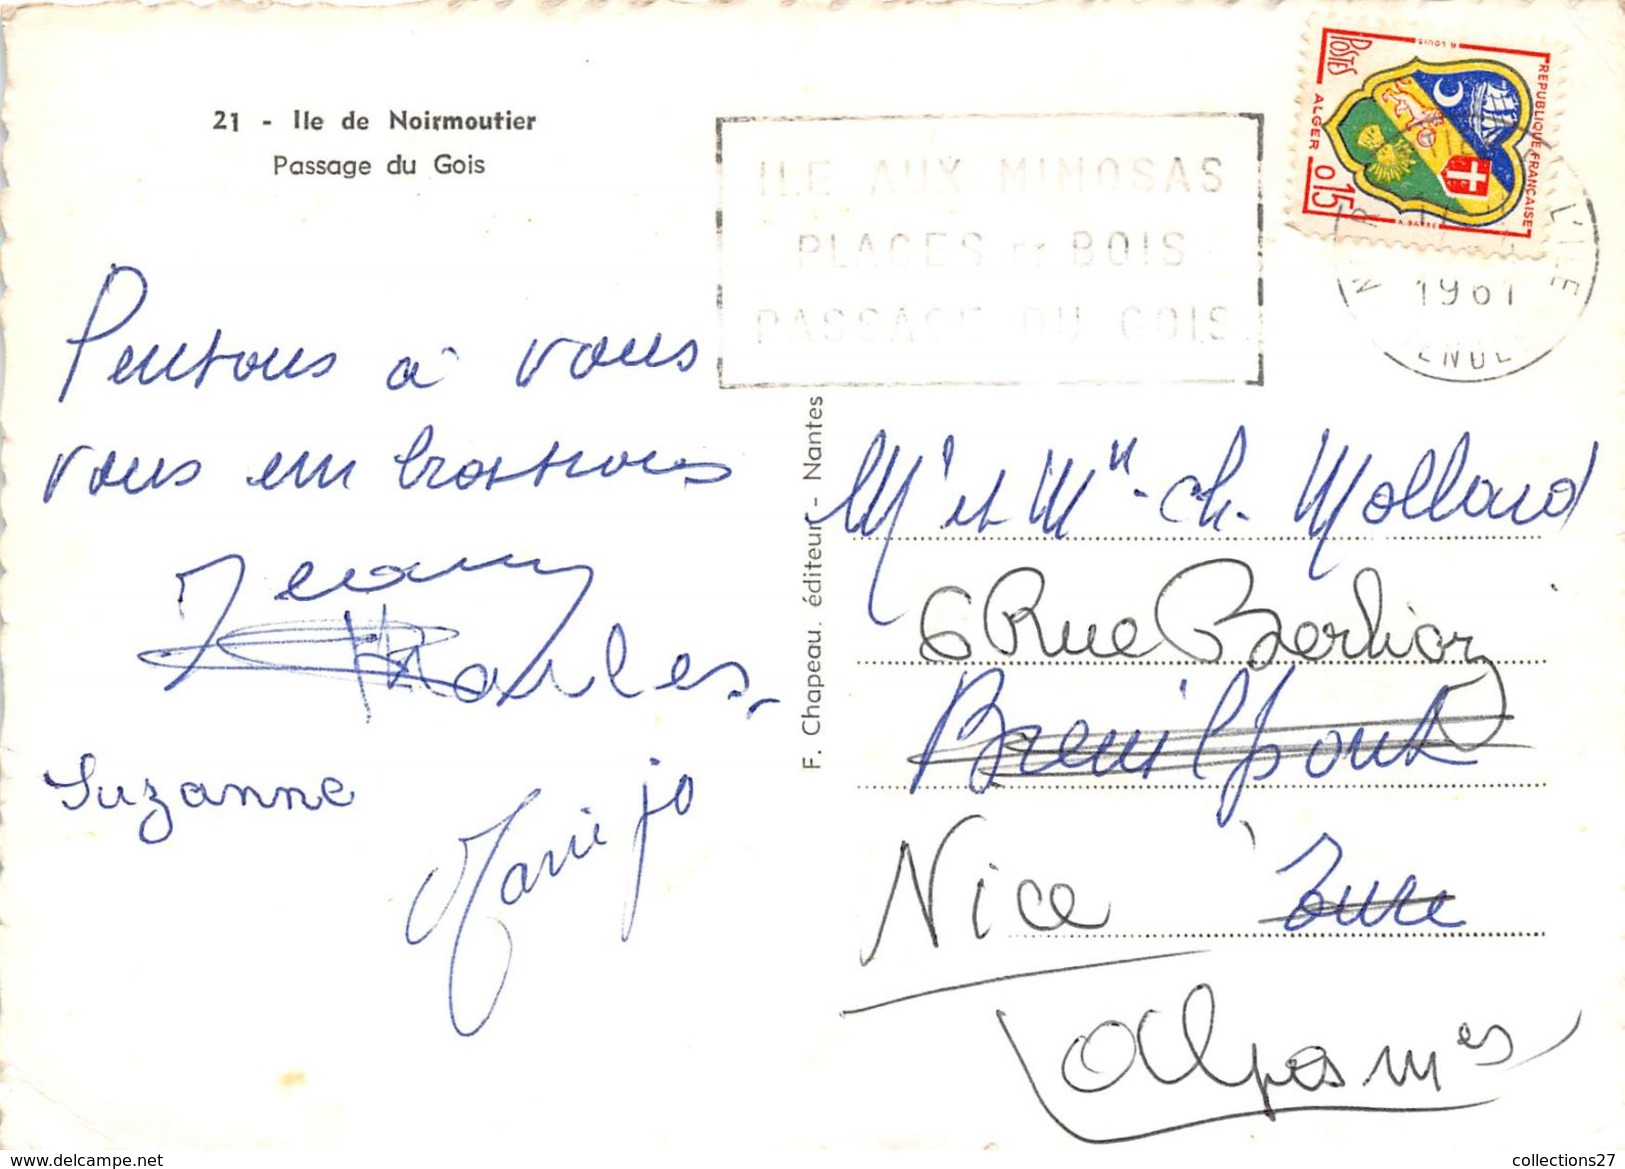 21 - Ile de Noirmoutier
Passage du Gois
POSTES
REPUBLIQUE FRANÇAISE
ALGER 0,15
ILE AUX MIMOSAS
PLAGES ET BOIS
PASSAGE DU GOIS
1961
Pensons à vous
vous embrassons
Jeanny
Charles
Suzanne
Marie jo
F. Chapeau. éditeur - Nantes
Mr et Mme ch. Mollard
6 Rue Berlioz
Breuilpont
Nice Eure
Alpes Mmes
collections27